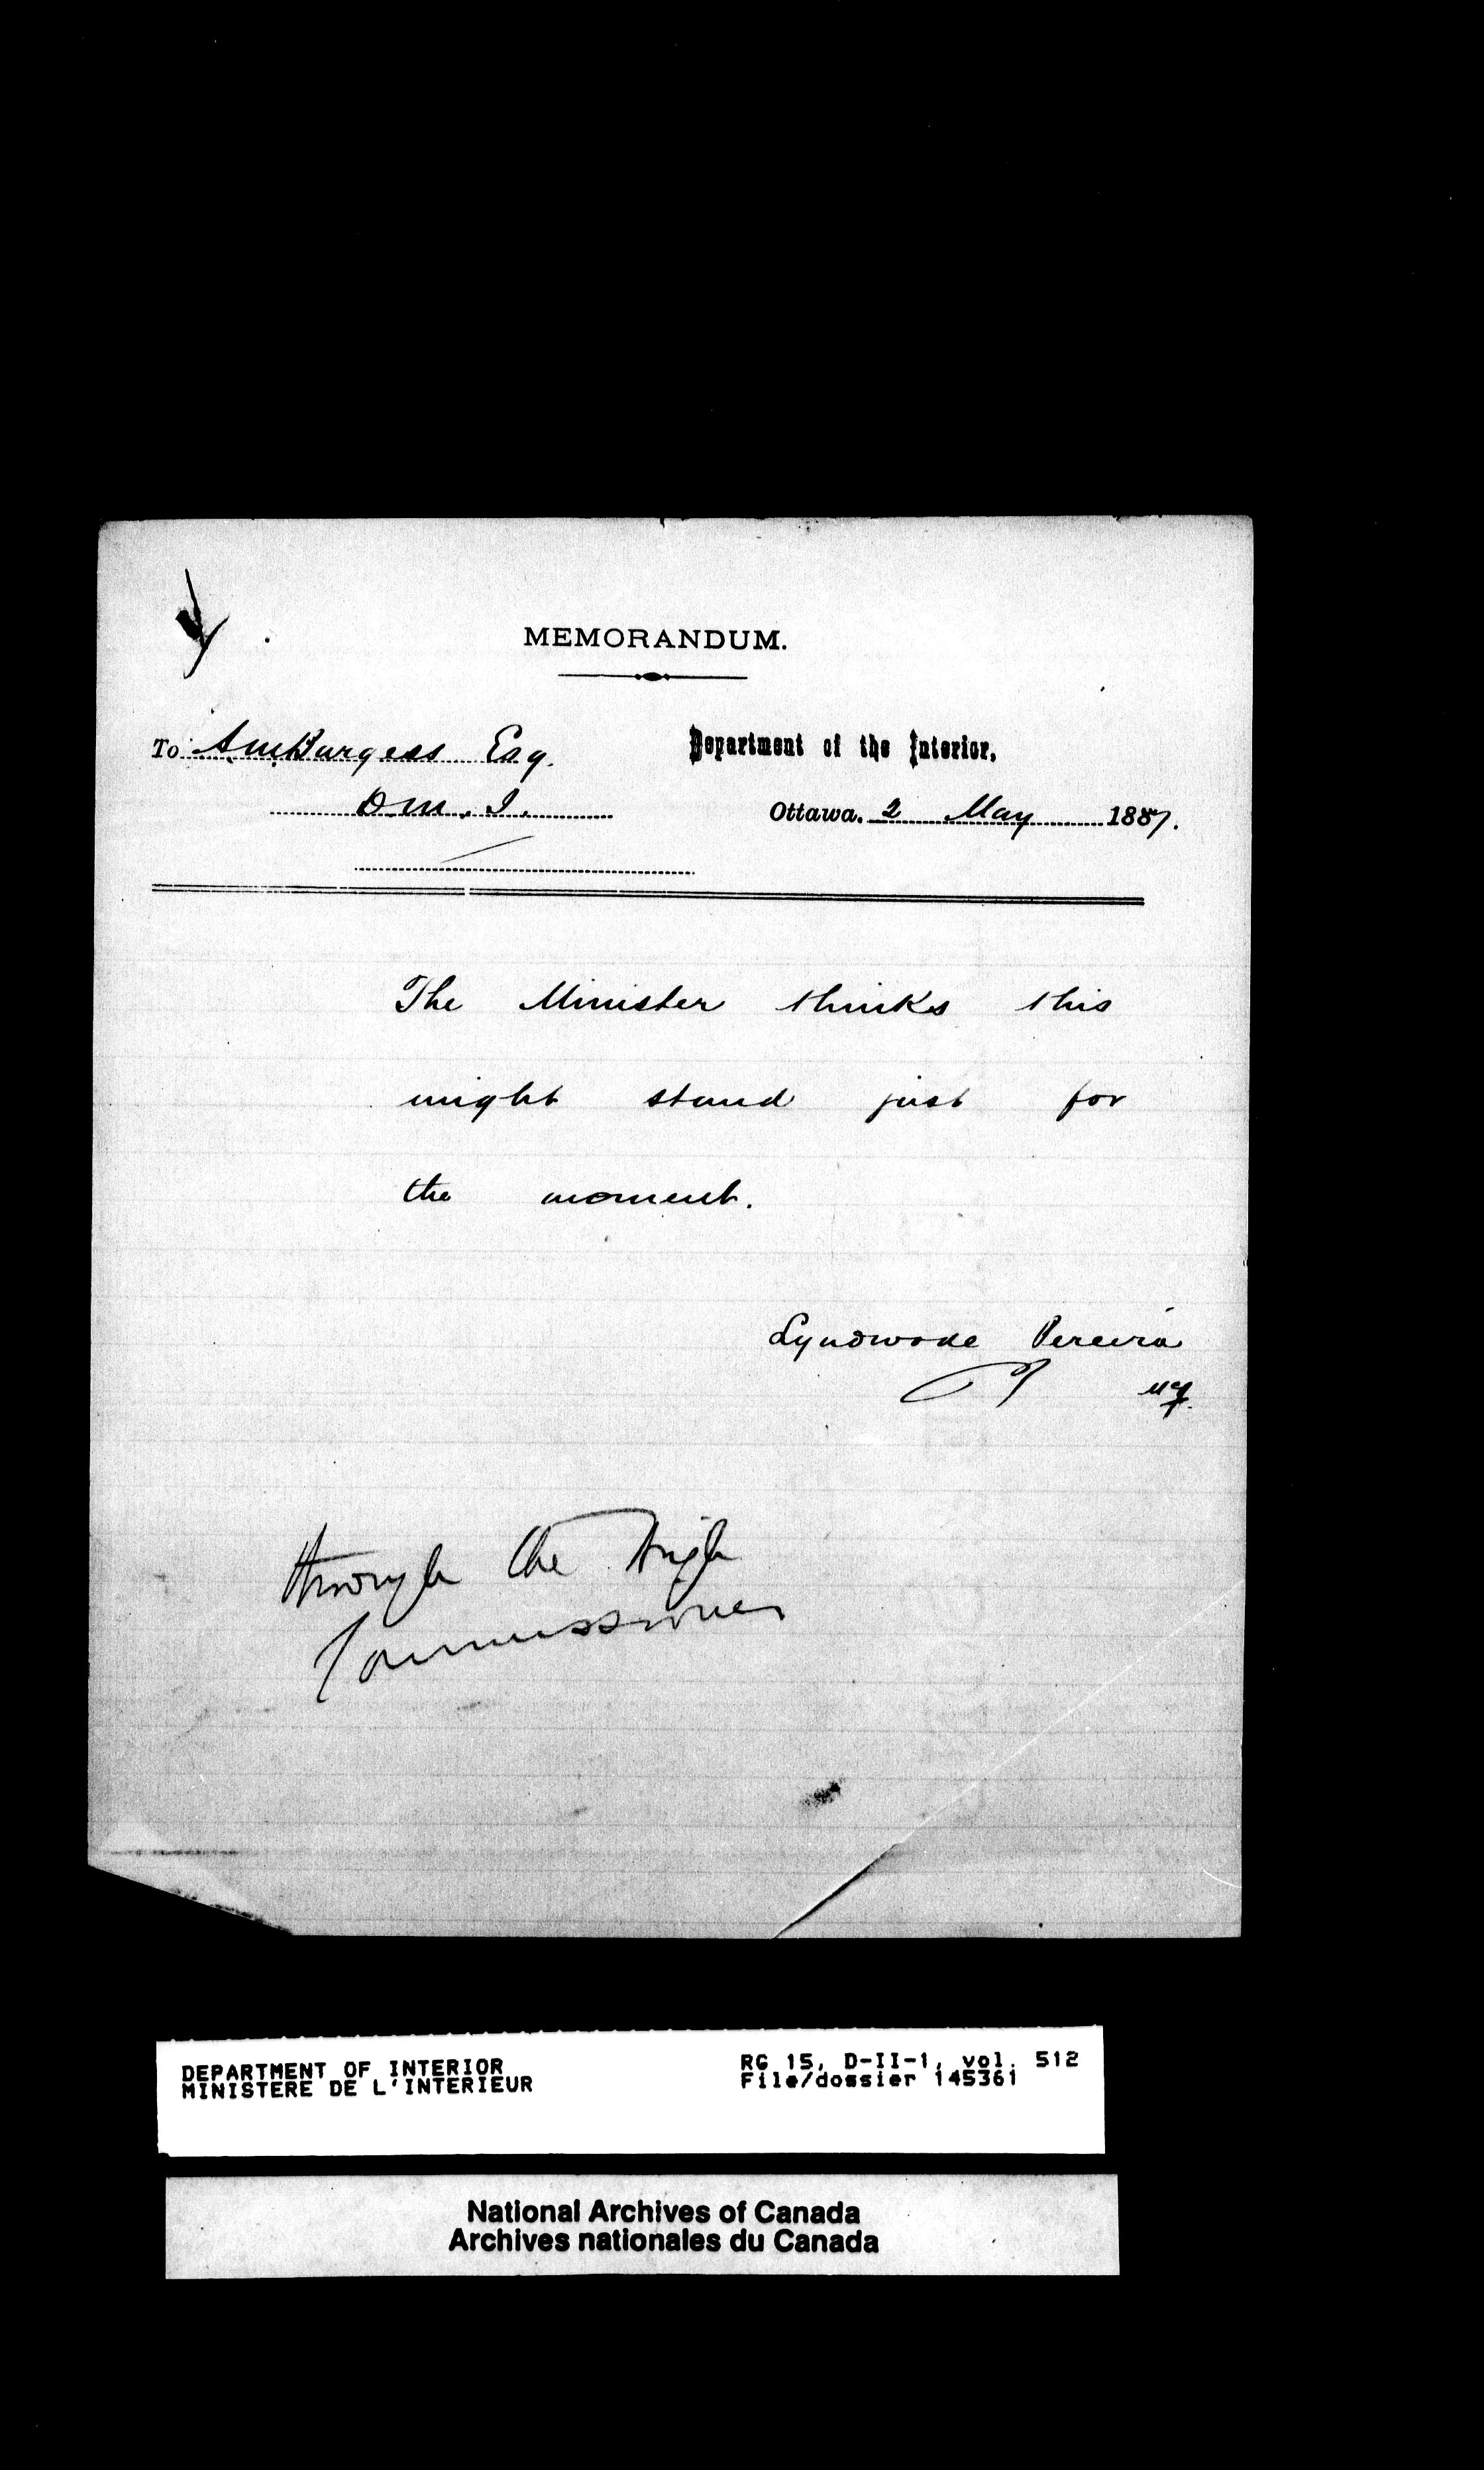 MEMORANDUM.
To AMBurgess Esq.
D.M.I.
Department of the Interior,
Ottawa, 2 May 1887.
The Minister thinks this
might stand just for
the moment.
Lyndwode Pereira
through the High
Commissioner
DEPARTMENT OF INTERIOR
MINISTERE DE L'INTERIEUR
RG 15, D-II-1, vol. 512
File/dossier 145361
National Archives of Canada
Archives nationales du Canada